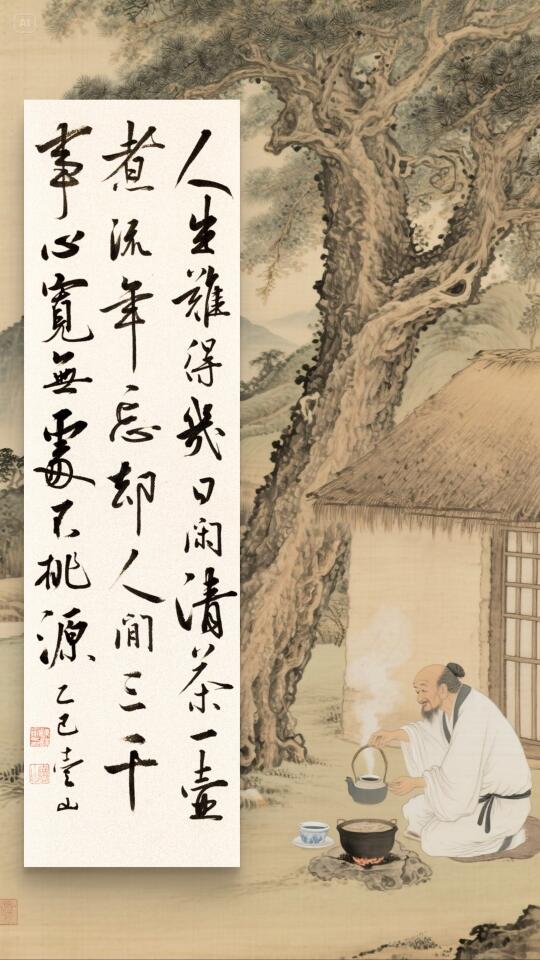 人生難得幾日闲清茶一壺
煮流年忘却人間三千
事心寬無處不桃源
乙巳 山
AI